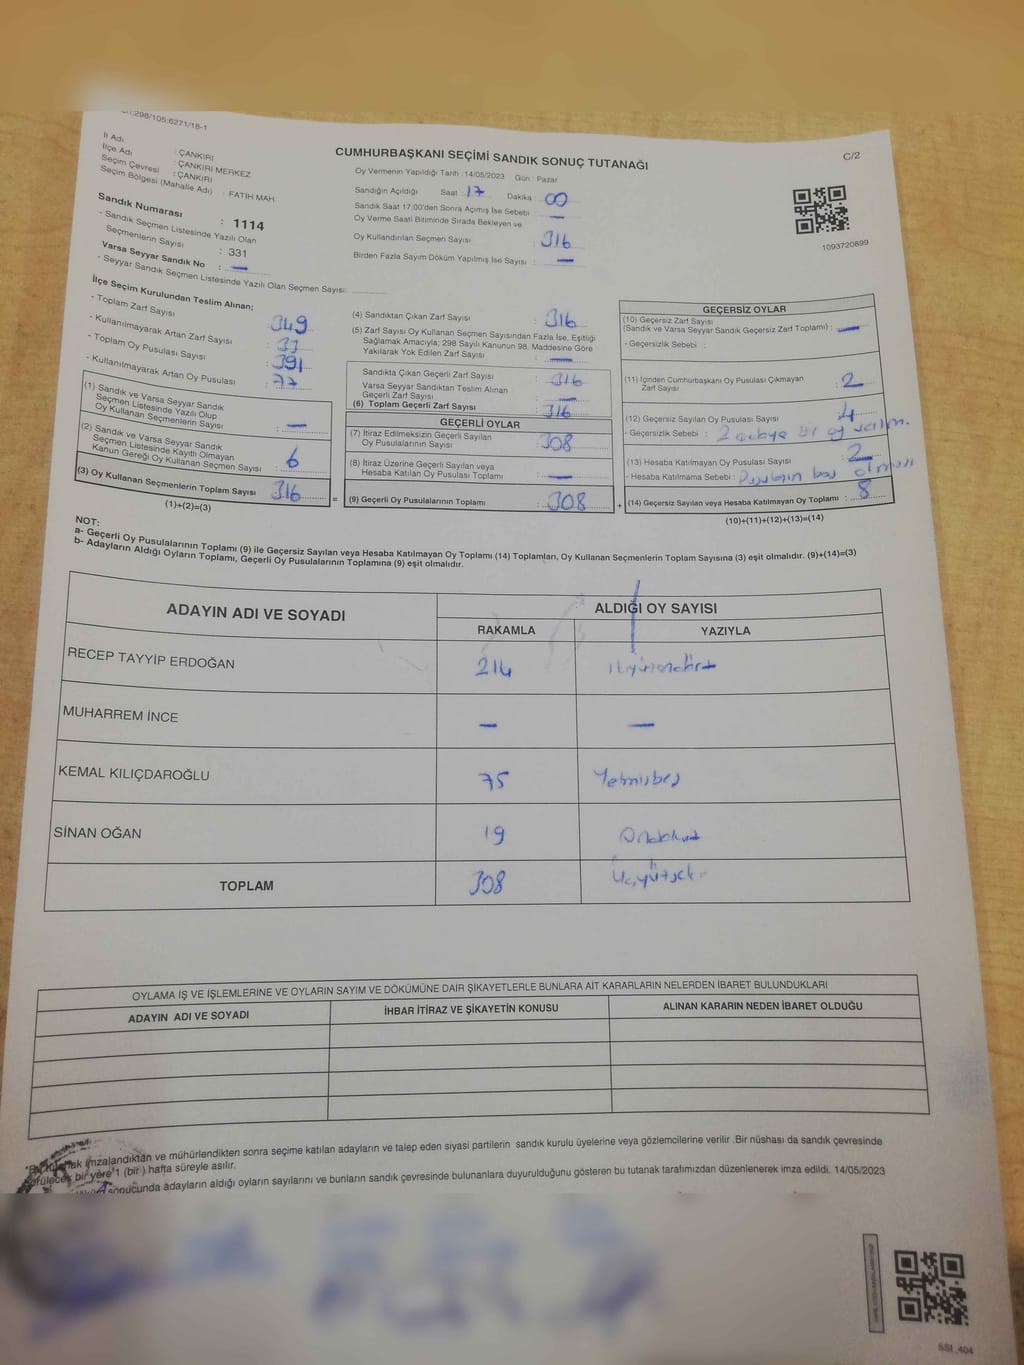 298/105;6271/18-1
İl Adı : ÇANKIRI
İlçe Adı : ÇANKIRI MERKEZ
Seçim Çevresi : ÇANKIRI
Seçim Bölgesi (Mahalle Adı) : FATİH MAH.
CUMHURBAŞKANI SEÇİMİ SANDIK SONUÇ TUTANAĞI
C/2
Oy Vermenin Yapıldığı Tarih :14/05/2023 Gün : Pazar
Sandığın Açıldığı Saat : 17 Dakika : 00
Sandık Saat 17.00'den Sonra Açımış İse Sebebi : —
Oy Verme Saati Bitiminde Sırada Bekleyen ve
Oy Kullandırılan Seçmen Sayısı : 316
Birden Fazla Sayım Döküm Yapılmış İse Sayısı : —
1093720899
Sandık Numarası : 1114
- Sandık Seçmen Listesinde Yazılı Olan
Seçmenlerin Sayısı : 331
Varsa Seyyar Sandık No : —
- Seyyar Sandık Seçmen Listesinde Yazılı Olan Seçmen Sayısı:
İlçe Seçim Kurulundan Teslim Alınan;
- Toplam Zarf Sayısı : 349
- Kullanılmayarak Artan Zarf Sayısı : 33
- Toplam Oy Pusulası Sayısı : 391
- Kullanılmayarak Artan Oy Pusulası : 77
(1) Sandık ve Varsa Seyyar Sandık
Seçmen Listesinde Yazılı Olup
Oy Kullanan Seçmenlerin Sayısı : —
(2) Sandık ve Varsa Seyyar Sandık
Seçmen Listesinde Kayıtlı Olmayan
Kanun Gereği Oy Kullanan Seçmen Sayısı : 6
(3) Oy Kullanan Seçmenlerin Toplam Sayısı : 316
(1)+(2)=(3)
(4) Sandıktan Çıkan Zarf Sayısı : 316
(5) Zarf Sayısı Oy Kullanan Seçmen Sayısından Fazla İse, Eşitliği
Sağlamak Amacıyla; 298 Sayılı Kanunun 98. Maddesine Göre
Yakılarak Yok Edilen Zarf Sayısı : —
Sandıkta Çıkan Geçerli Zarf Sayısı : 316
Varsa Seyyar Sandıktan Teslim Alınan
Geçerli Zarf Sayısı : —
(6) Toplam Geçerli Zarf Sayısı : 316
GEÇERLİ OYLAR
(7) İtiraz Edilmeksizin Geçerli Sayılan
Oy Pusulalarının Sayısı : 308
(8) İtiraz Üzerine Geçerli Sayılan veya
Hesaba Katılan Oy Pusulası Toplamı : —
= (9) Geçerli Oy Pusulalarının Toplamı : 308
GEÇERSİZ OYLAR
(10) Geçersiz Zarf Sayısı
(Sandık ve Varsa Seyyar Sandık Geçersiz Zarf Toplamı) : —
- Geçersizlik Sebebi :
(11) İçinden Cumhurbaşkanı Oy Pusulası Çıkmayan
Zarf Sayısı : 2
(12) Geçersiz Sayılan Oy Pusulası Sayısı : 4
- Geçersizlik Sebebi : 2
(13) Hesaba Katılmayan Oy Pusulası Sayısı : 2
- Hesaba Katılmama Sebebi : Pusulanın boş olması
+ (14) Geçersiz Sayılan veya Hesaba Katılmayan Oy Toplamı : 8
(10)+(11)+(12)+(13)=(14)
NOT:
a- Geçerli Oy Pusulalarının Toplamı (9) ile Geçersiz Sayılan veya Hesaba Katılmayan Oy Toplamı (14) Toplamları, Oy Kullanan Seçmenlerin Toplam Sayısına (3) eşit olmalıdır. (9)+(14)=(3)
b- Adayların Aldığı Oyların Toplamı, Geçerli Oy Pusulalarının Toplamına (9) eşit olmalıdır.
ADAYIN ADI VE SOYADI
ALDIĞI OY SAYISI
RAKAMLA YAZIYLA
RECEP TAYYİP ERDOĞAN 214 ikiyüzondört
MUHARREM İNCE — —
KEMAL KILIÇDAROĞLU 75 Yetmişbeş
SİNAN OĞAN 19 Ondokuz
TOPLAM 308 Üçyüzsekiz
OYLAMA İŞ VE İŞLEMLERİNE VE OYLARIN SAYIM VE DÖKÜMÜNE DAİR ŞİKAYETLERLE BUNLARA AİT KARARLARIN NELERDEN İBARET BULUNDUKLARI
ADAYIN ADI VE SOYADI İHBAR İTİRAZ VE ŞİKAYETİN KONUSU ALINAN KARARIN NEDEN İBARET OLDUĞU
imzalandıktan ve mühürlendikten sonra seçime katılan adayların ve talep eden siyasi partilerin sandık kurulu üyelerine veya gözlemcilerine verilir .Bir nüshası da sandık çevresinde
bir yere 1 (bir ) hafta süreyle asılır.
sonucunda adayların aldığı oyların sayılarını ve bunların sandık çevresinde bulunanlara duyurulduğunu gösteren bu tutanak tarafımızdan düzenlenerek imza edildi. 14/05/2023
SSI_404